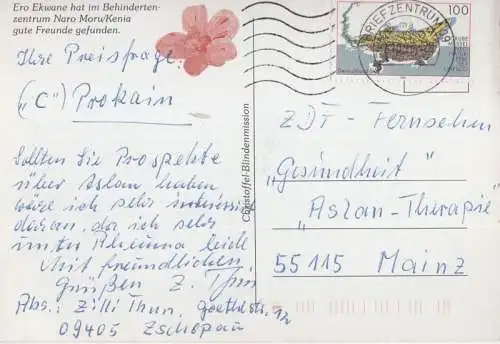 Ero Ekwane hat im Behinderten-
zentrum Naro Moru/Kenia
gute Freunde gefunden.
Ihre Preisfrage
("C") Prokain
Sollten Sie Prospekte
über Aslan haben,
wäre ich sehr interessiert
daran, da ich sehr
unter Rheuma leide
Mit freundlichen
Grüßen Z. Thun
Abs: Zilli Thun, Goethestr. 12
09405 Zschopau
Christoffel-Blindenmission
BRIEFZENTRUM 09
100
Deutschland
ZDF-Fernsehen
"Gesundheit"
"Aslan-Therapie
55115 Mainz